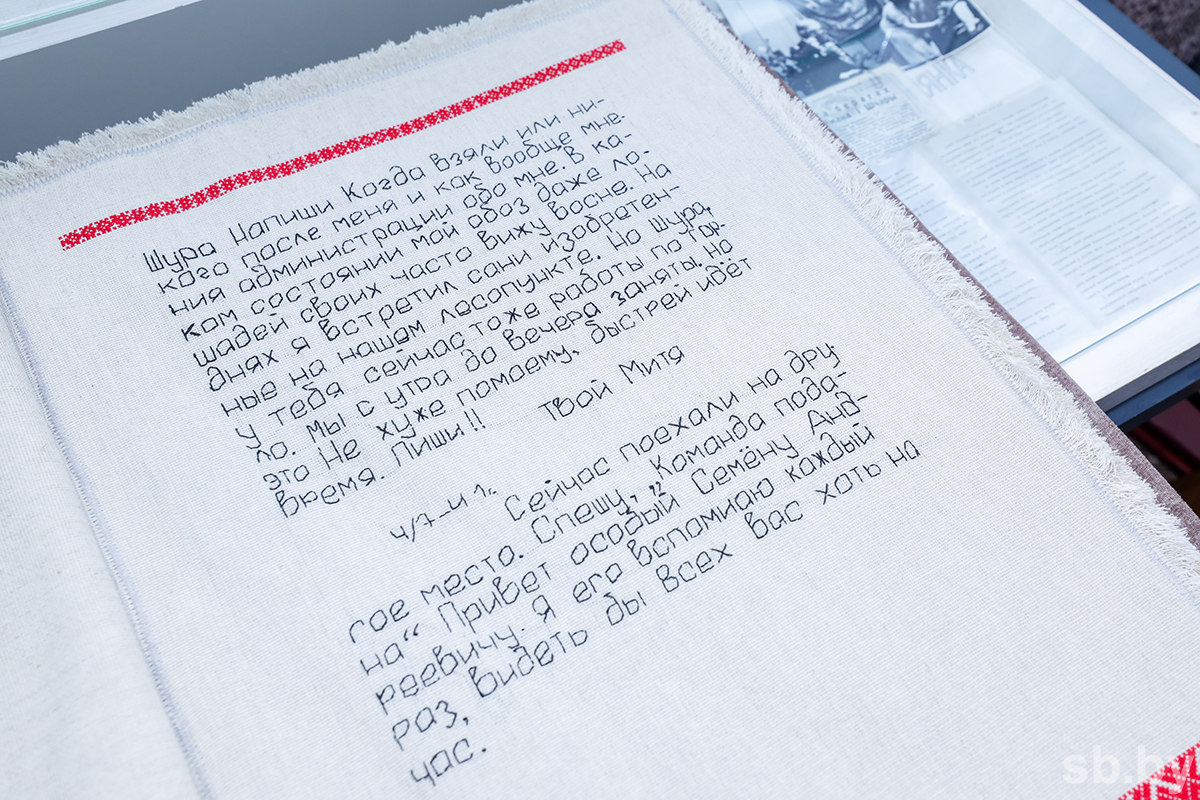 Шура Напиши Когда взяли или ни-
кого после меня и как вообще мне-
ния администрации обо мне. В ка-
ком состоянии мой обоз даже ло-
шадей своих часто вижу восне. На
днях я встретил сани изобретен-
ные на нашем лесопункте. Но Шура,
у тебя сейчас тоже работы по гор-
ло. Мы с утра до вечера заняты. Но
это Не хуже помоему, быстрей идёт
время. Пиши!! Твой Митя
4/7-41г. Сейчас поехали на дру-
гое место. Спешу, „Команда пода-
на“ Привет особый Семёну Анд-
реевичу. Я его вспомнаю каждый
раз, видеть бы всех вас хоть на
час.
sb.by